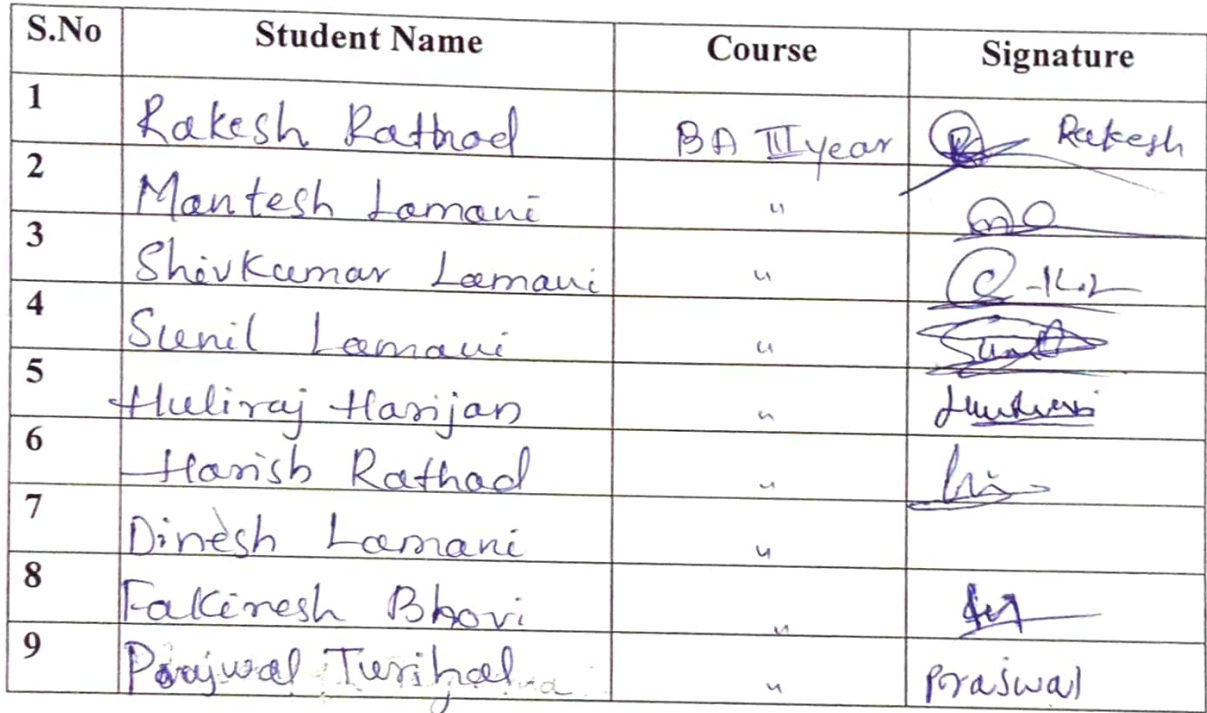 S.No Student Name Course Signature
1 Rakesh Rathod BA III year Rakesh
2 Mantesh Lamani "
3 Shivkumar Lamani "
4 Sunil Lamani " Sunil
5 Huliraj Harijan "
6 Harish Rathod "
7 Dinesh Lamani "
8 Fakiresh Bhovi "
9 Prajwal Turihal " Prajwal